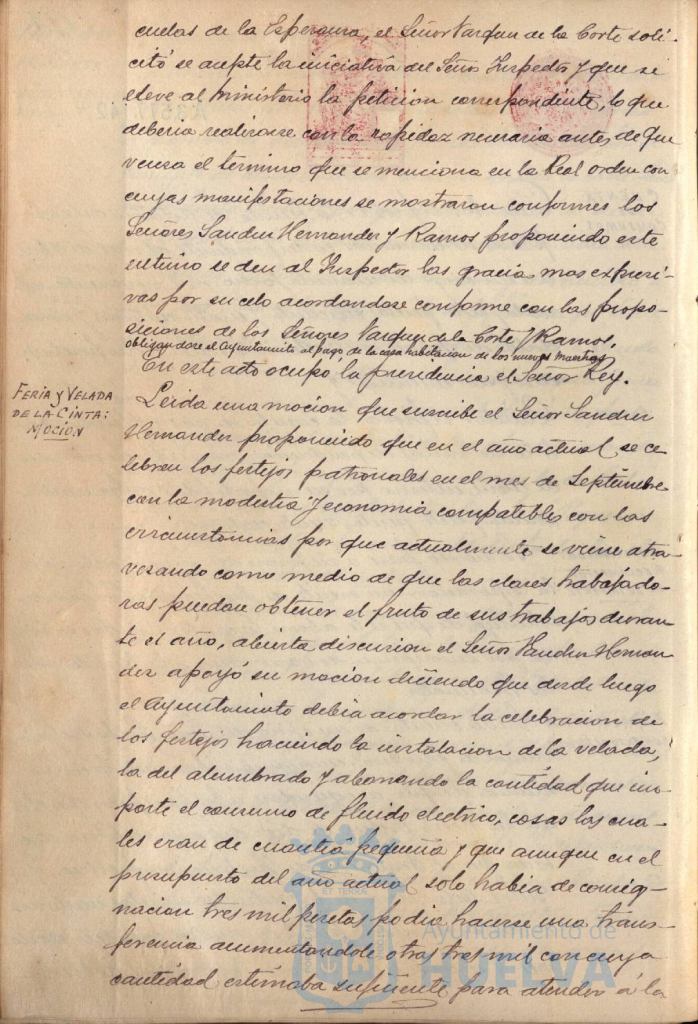 cuelas de la Esperanza, el Señor Vazquez de la Corte soli-
citó se acepte la iniciativa del Señor Inspector y que se
eleve al Ministerio la peticion correspondiente, lo que
deberia realizarse con la rapidez necesaria antes de que
venza el termino que se menciona en la Real orden con
cuyas manifestaciones se mostraron conformes los
Señores Sanchez Hernandez y Ramos proponiendo este
ultimo se den al Inspector las gracias mas expresi-
vas por su celo acordandose conforme con las propo-
siciones de los Señores Vazquez de la Corte y Ramos,
obligandose el Ayuntamiento al pago de la casa habitacion de los nuevos maestros
En este acto ocupó la presidencia el Señor Rey.
FERIA Y VELADA
DE LA CINTA:
MOCIÓN
Leida una mocion que suscribe el Señor Sanchez
Hernandez proponiendo que en el año actual se ce
lebren los festejos patronales en el mes de Septiembre
con la modestia y economia compatibles con las
circunstancias por que actualmente se viene atra-
vesando como medio de que las clases trabajado-
ras puedan obtener el fruto de sus trabajos duran
te el año, abierta discusion el Señor Sanchez Hernan
dez apoyó su mocion diciendo que desde luego
el Ayuntamiento debia acordar la celebracion de
los festejos haciendo la instalacion de la velada,
la del alumbrado y abonando la cantidad que im-
porte el consumo de fluido electrico, cosas las cua-
les eran de cuantia pequeña y que aunque en el
presupuesto del año actual solo habia de consig-
nacion tres mil pesetas podia hacerse una trans-
ferencia aumentandole otras tres mil con cuya
cantidad estimaba suficiente para atender á la
Ayuntamiento de
HUELVA